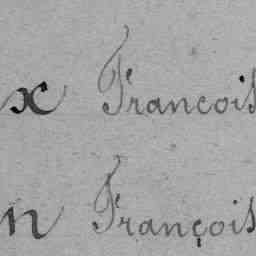 x Francois
n François